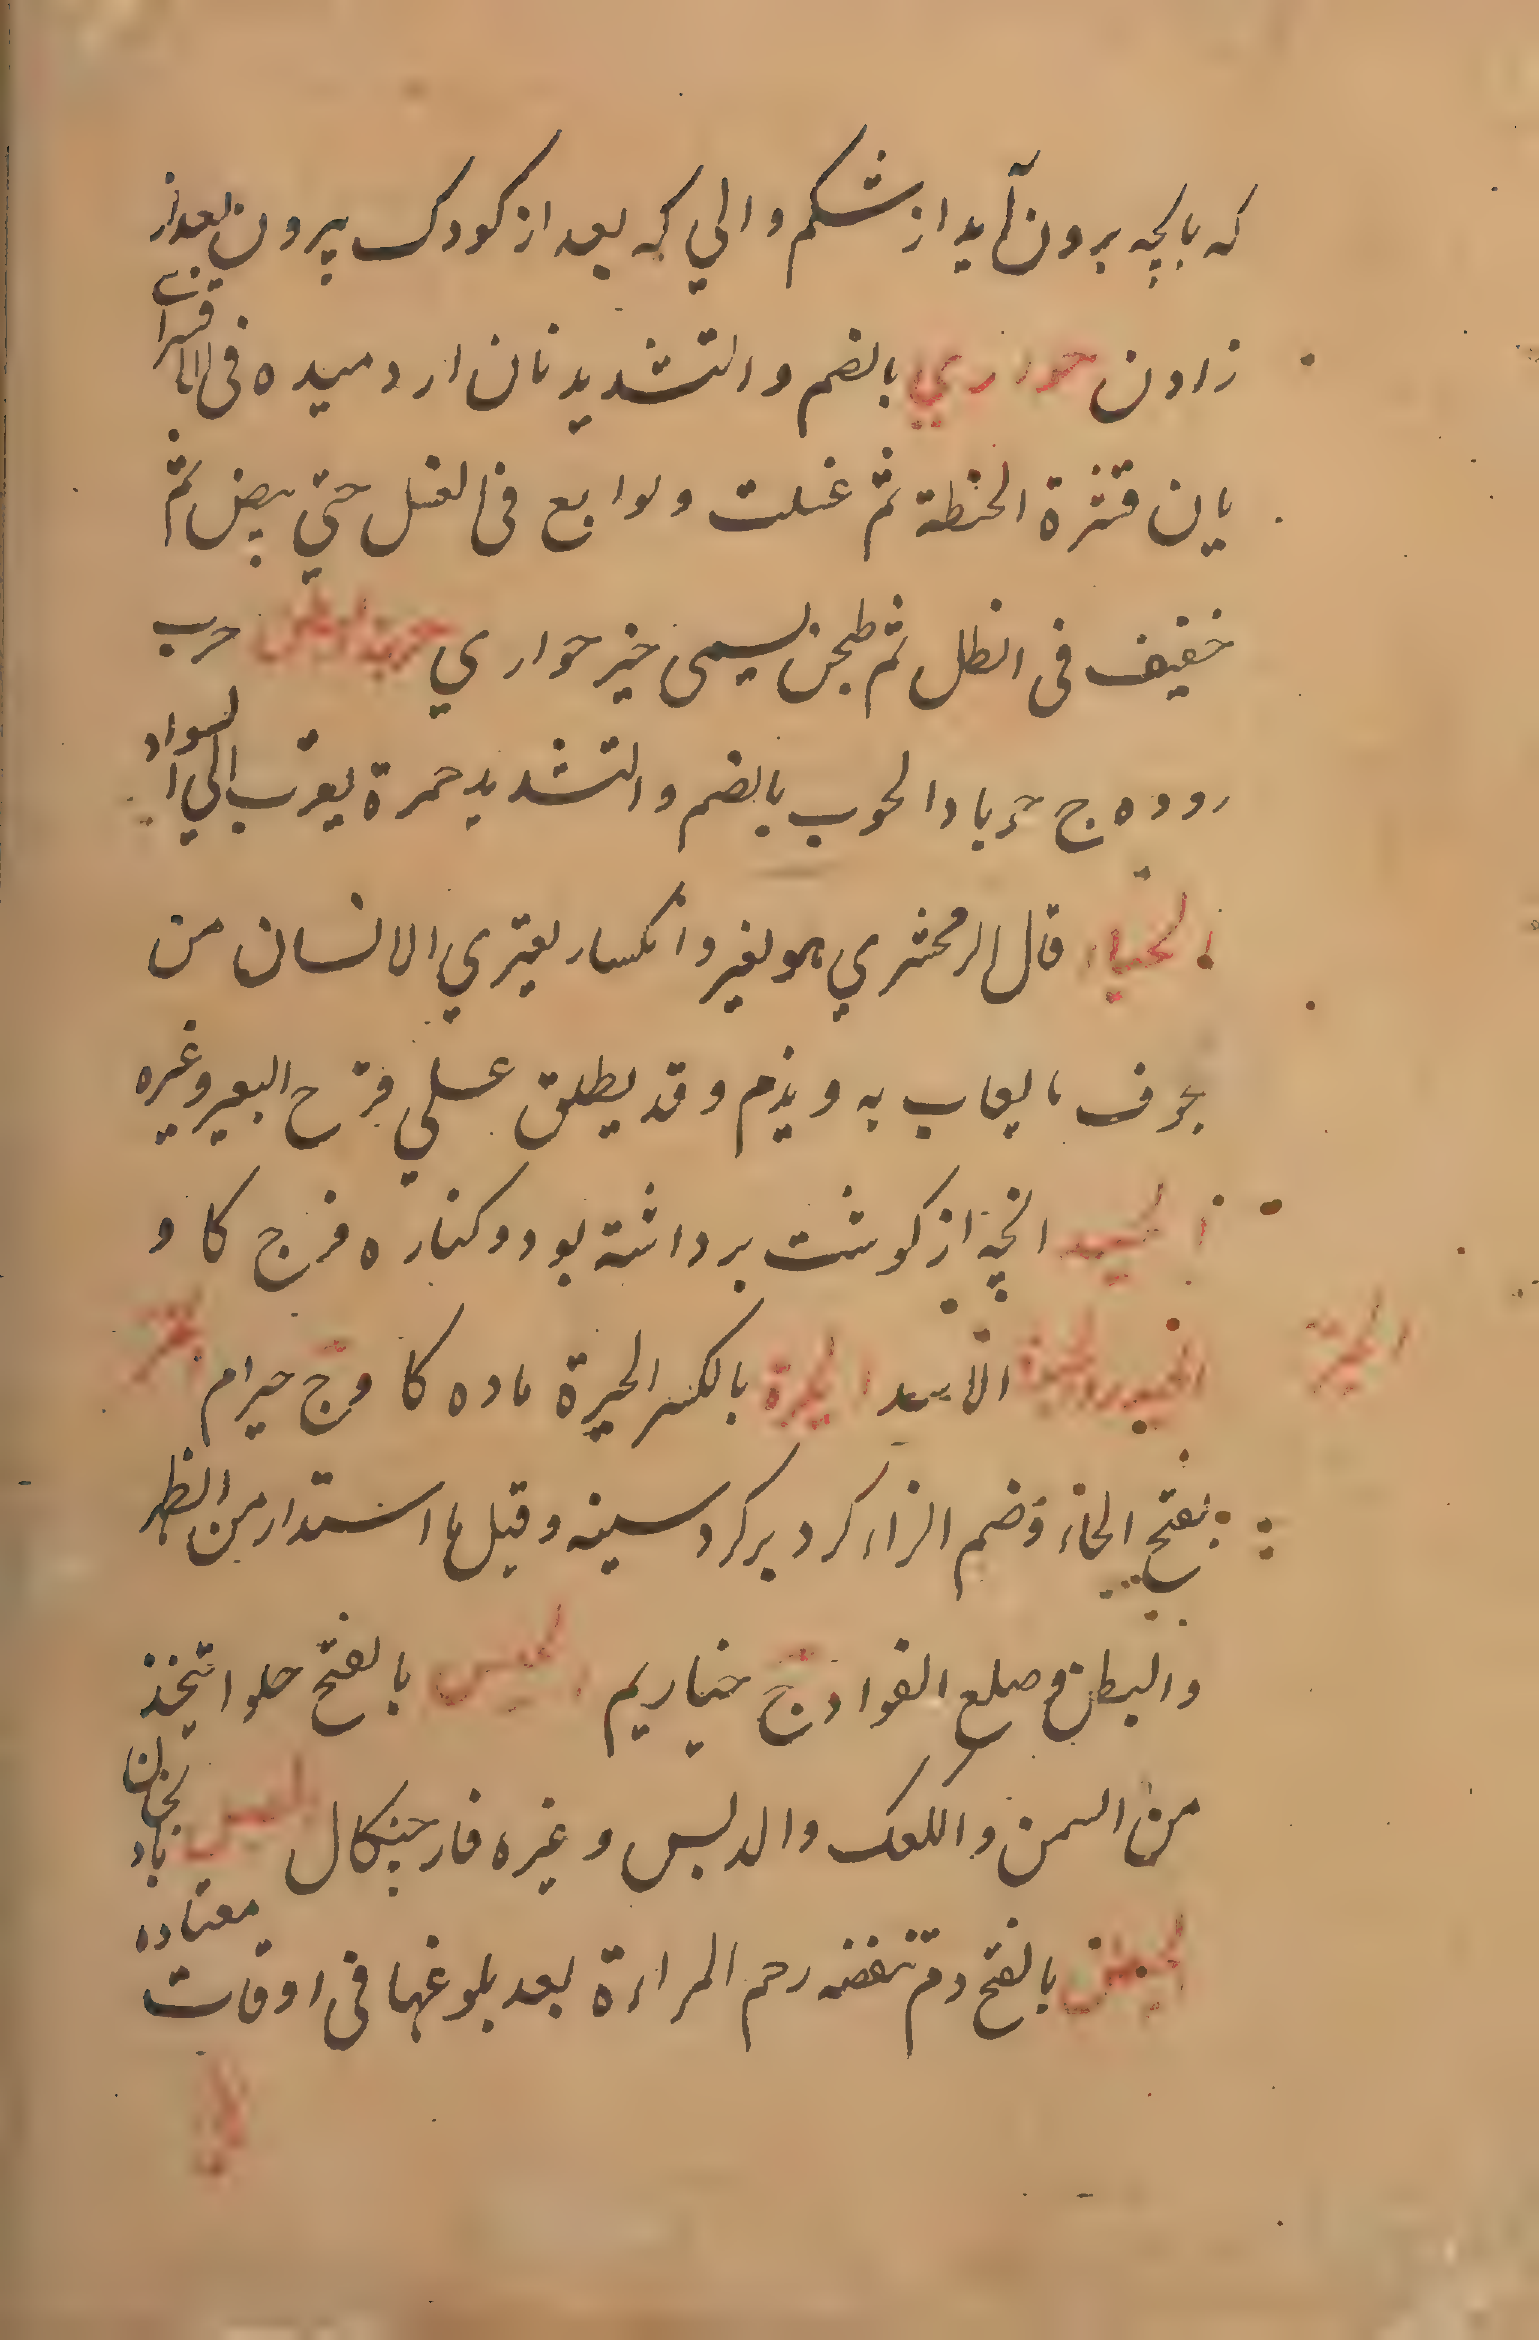 که بابچه برون آید از شکم والي که بعد از کودک بیرون بعد از
زادن حواري بالضم والتشدید نان ارد میده فی
یان قشرة الحنطة ثم غسلت و لوابع فی الغسل حتي یبض ثم
خفیف فی الظل ثم طحن لیسمی خبز حواري حرب
روده ج حربا دالحوب بالضم والتشدید حمرة یقرب الي السواد
الحیاء قال الزمخشري هو تغیر وانکسار یعتري الانسان من
بحرف ما یعاب به و یذم و قد یطلق علي فرج البعیر وغیره
انچه از کوشت برداشته بود و کناره فرج کاو
الاسد الحیرة بالکسر الحیرة ماده کاو ج حیرام
بفتح الحاء وضم الزاء کرد برکرد سینه و قیل ما استدار من الظهر
والبطن و ضلع الفواد ج حیازیم الحیس بالفتح حلوا تتخذ
من السمن و اللعک والدبس و غیره فار چنکال
الحیض بالفتح دم تنفضه رحم المراءة بعد بلوغها فی اوقات معتاده